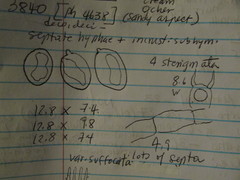 3840 [ph 4638] cream
ocher
(sandy aspect)
septate hyphae +
4 sterigmata
8.6
W
12.8 x 7.4
12.8 x 9.8
12.8 x 7.4
4.9
var. suffocata
lots of septa